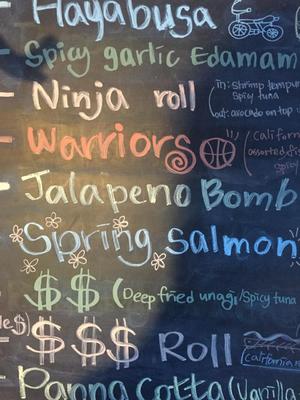 - Hayabusa
- Spicy garlic Edamam
- Ninja roll (in: shrimp tempur
spicy tuna
out: avocado on top
- Warriors (Californ
assorted fis
- Jalapeno Bomb
- Spring salmon
$$ (Deep fried unagi/Spicy tuna
$$$ Roll
California
- Panna Cotta (Vanilla